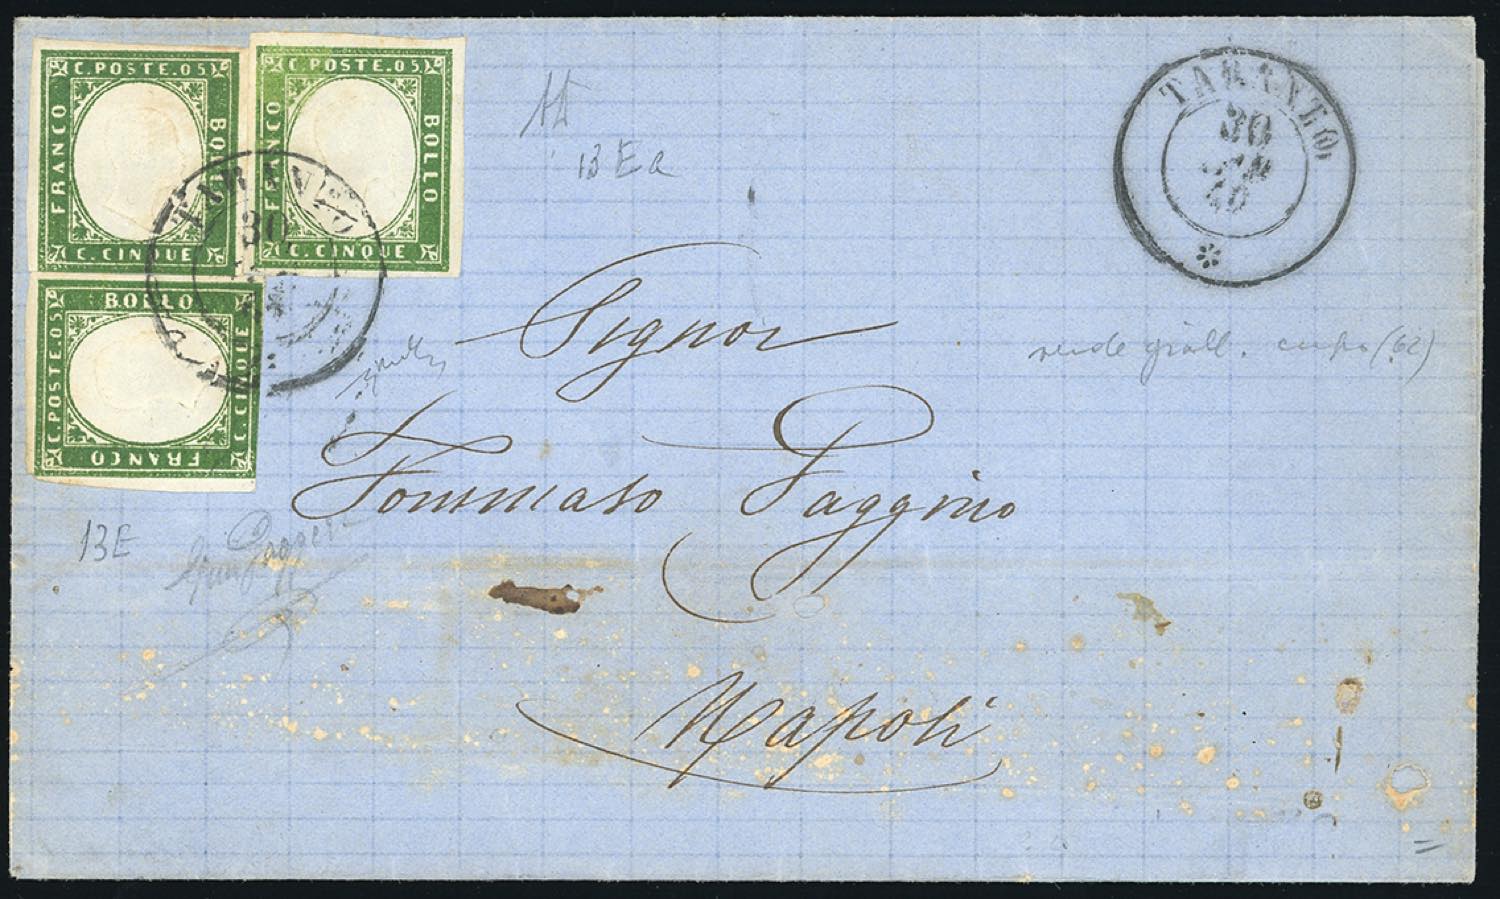 C.POSTE.05
FRANCO
BOLLO
C.CINQUE
C.POSTE.05
FRANCO
BOLLO
C.CINQUE
BOLLO
C.POSTE.05
C.CINQUE
FRANCO
TARANTO
30
TARANTO
30
13 Ea
Signor
Tommaso Faggino
Napoli
13E
(62)